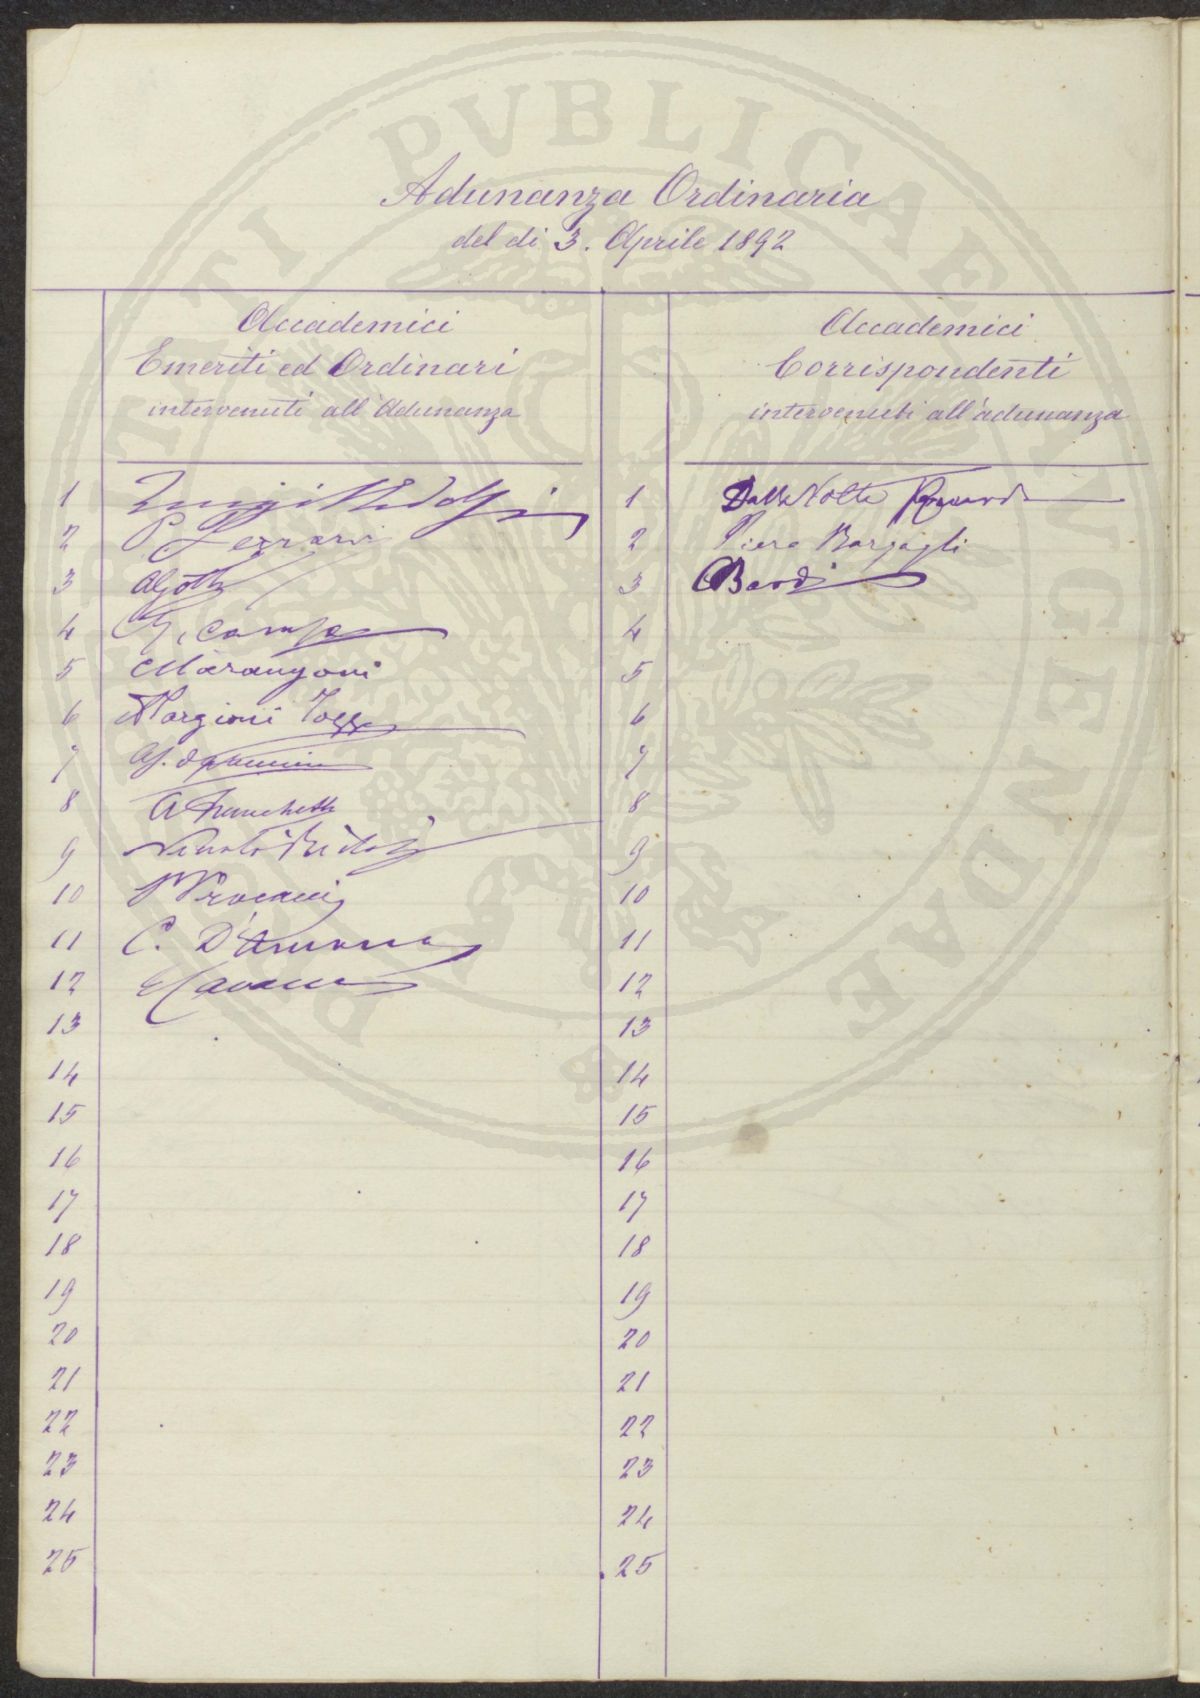 PROSPERITATI PVBLICAE AVGENDAE
Adunanza Ordinaria
del di 3. Aprile 1892
Accademici
Emeriti ed Ordinari
intervenuti all'Adunanza
1 Luigi Ridolfi
2 P. Ferrari
3 AGotti
4
5 CMarangoni
6
7
8 A Franchetti
9
10
11 C. D'Ancona
12
13
14
15
16
17
18
19
20
21
22
23
24
25
Accademici
Corrispondenti
intervenuti all'adunanza
1 Dalla Volta Riccardo
2 Piero Bargagli
3 Bardi
4
5
6
7
8
9
10
11
12
13
14
15
16
17
18
19
20
21
22
23
24
25